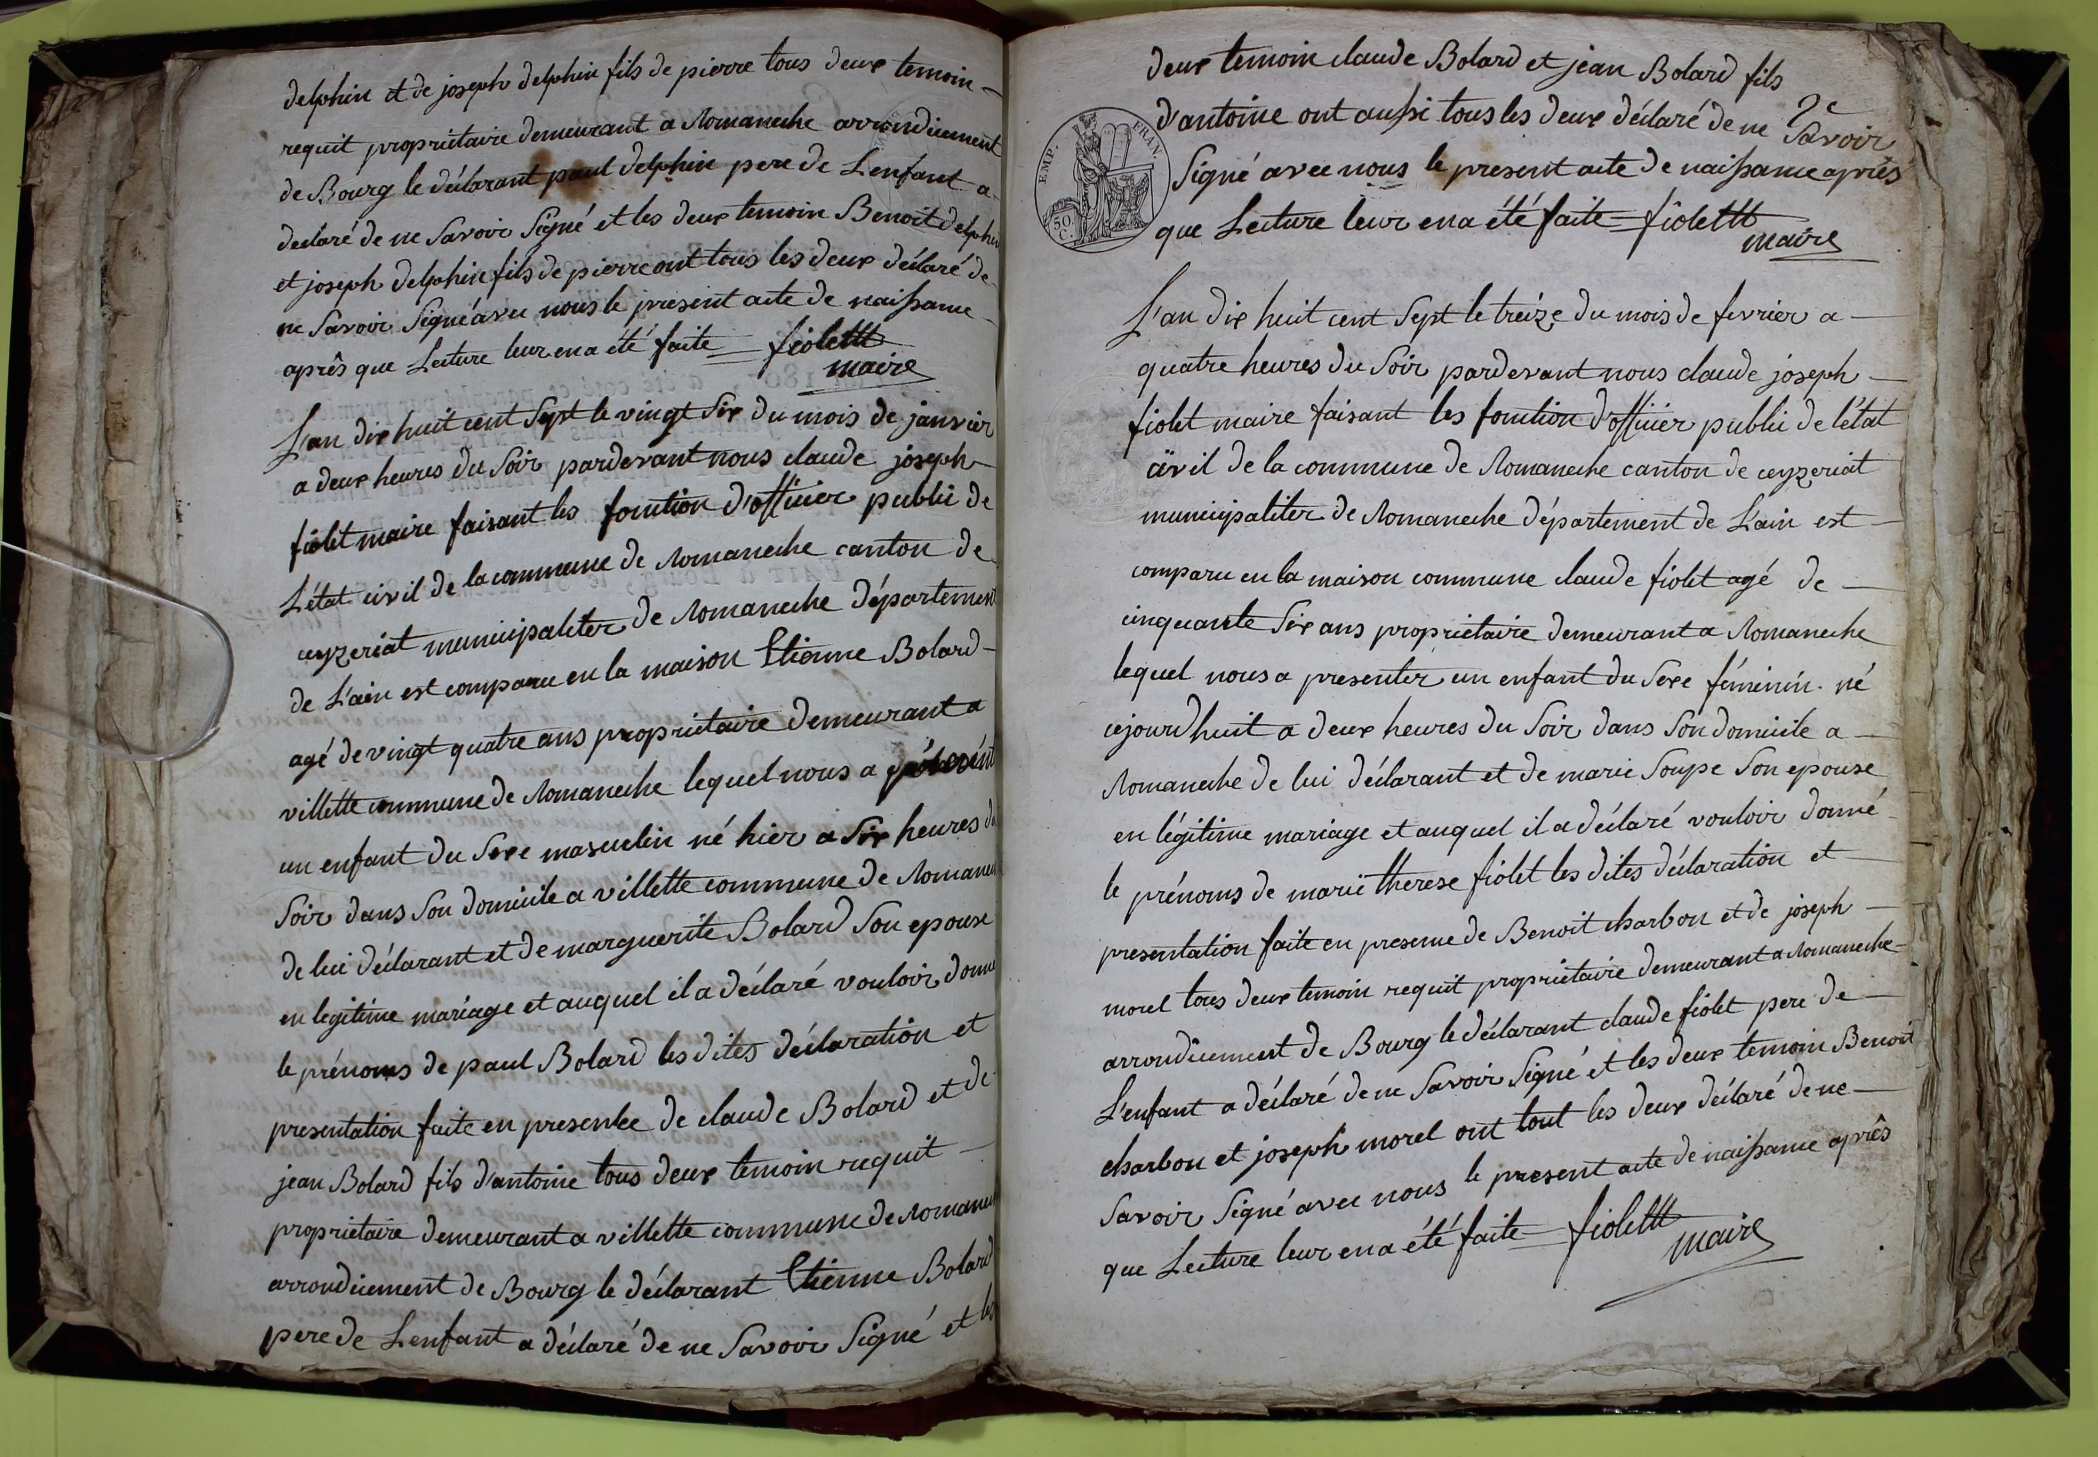 delphin et de joseph delphin fils de pierre tous deux temoin
requit propriétaire demeurant a Romaneche arrondicement
de Bourg le déclarant paul delphin pere de L'enfant a
declaré de ne Savoir Signé et les deux temoin Benoit delphin
et joseph delphin fils de pierre ont tous les deux déclaré de
ne Savoir Signé avec nous le présent acte de naissance
après que Lecture leur en a été faite = fiolet
maire
L'an dix huit cent Sept le vingt Six du mois de janvier
a deux heures du Soir pardevant nous claude joseph
fiolet maire faisant les fonction d'officier public de
L'état civil de la commune de Romaneche canton de
ceyzeriat municipaliter de Romaneche département
de L'ain est comparu en la maison Etienne Bolard
agé de vingt quatre ans propriétaire demeurant a
villette commune de Romaneche lequel nous a
un enfant du Sexe masculin né hier a Six heures du
Soir dans Son domicile a villette commune de Romanec
de lui déclarant et de marguerite Bolard Son epouse
en legitime mariage et auquel il a déclaré vouloir donné
le prénoms de paul Bolard les dites déclaration et
presentation faite en presentce de claude Bolard et de
jean Bolard fils d'antoine tous deux temoin requit
propriétaire demeurant a villette commune de Romanec
arrondicement de Bourg le déclarant Etienne Bolard
pere de L'enfant a déclaré de ne Savoir Signé et les
deux temoin claude Bolard et jean Bolard fils
2e
d'antoine ont aussi tous les deux déclaré de ne Savoir
Signé avec nous le present acte de naissance après
que Lecture leur en a été faite = fiolet
maire
EMP. FRAN.
50 C.
L'an dix huit cent Sept le treize du mois de fevrier a
quatre heures du Soir pardevant nous claude joseph
fiolet maire faisant les fonction d'officier public de l'état
civil de la commune de Romaneche canton de ceyzeriat
municipaliter de Romaneche département de L'ain est
comparu en la maison commune claude fiolet agé de
cinquante Six ans propriétaire demeurant a Romaneche
lequel nous a presenter un enfant du Sexe féminin né
cejourdhuit a deux heures du Soir dans Son domicile a
Romaneche de lui déclarant et de marie Soupe Son epouse
en légitime mariage et auquel il a déclaré vouloir donné
le prénoms de marie therese fiolet les dites déclaration et
presentation faite en presence de Benoit charbon et de joseph
morel tous deux temoin requit propriétaire demeurant a Romaneche
arrondicement de Bourg le déclarant claude fiolet pere de
L'enfant a déclaré de ne Savoir Signé et les deux temoin Benoit
charbon et joseph morel ont tout les deux déclaré de ne
Savoir Signé avec nous le present acte de naissance après
que Lecture leur en a été faite = fiolet
maire